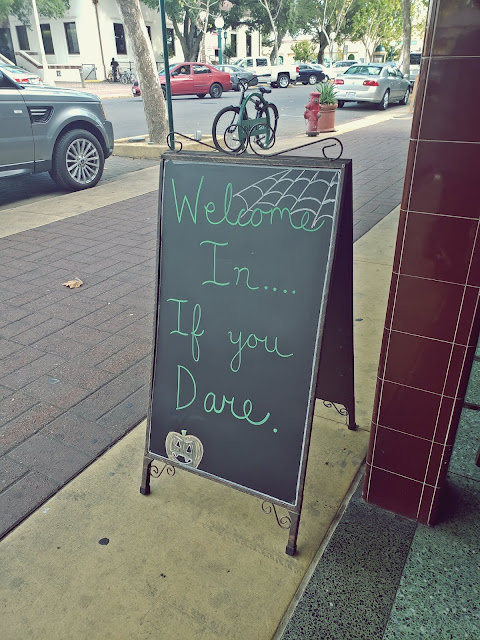 Welcome
In....
If you
Dare.